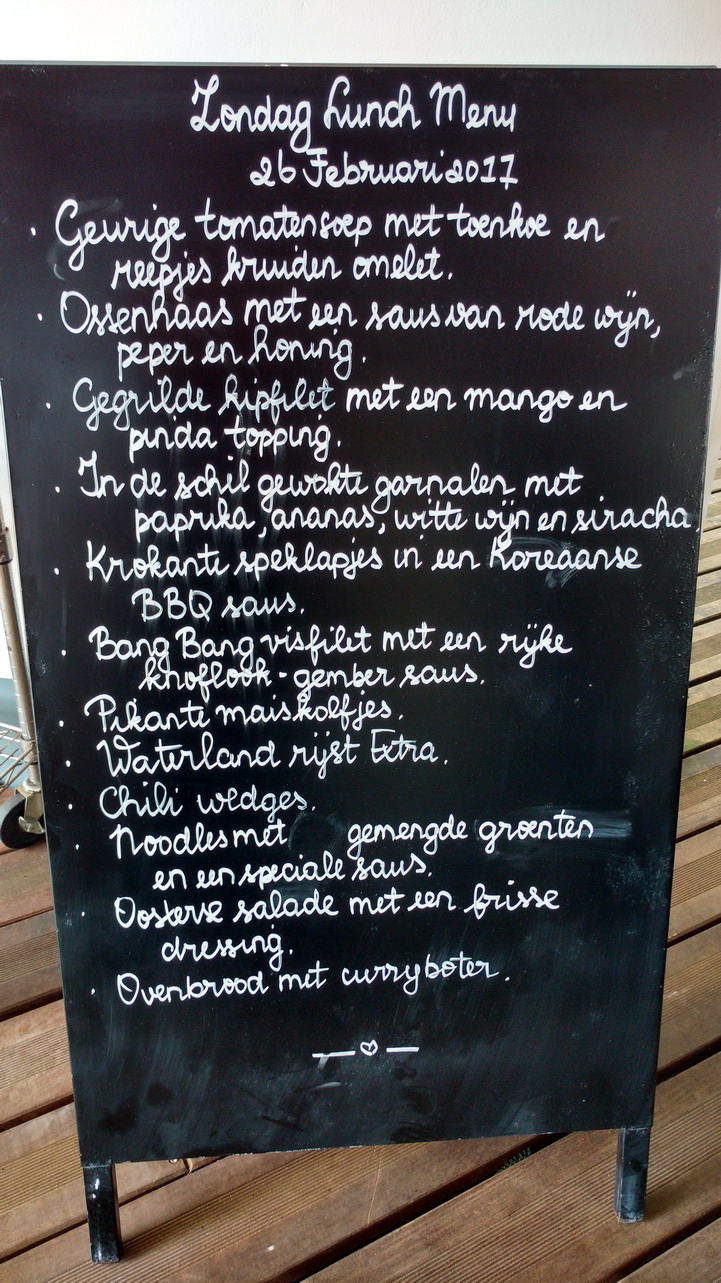 Zondag Lunch Menu
26 Februari 2017
• Geurige tomatensoep met toenkoe en
reepjes kruiden omelet.
• Ossenhaas met een saus van rode wijn,
peper en honing.
• Gegrilde kipfilet met een mango en
pinda topping.
• In de schil gewokte garnalen met
paprika, ananas, witte wijn en siracha
• Krokante speklapjes in een Koreaanse
BBQ saus.
• Bang Bang visfilet met een rijke
knoflook-gember saus.
• Pikante maiskolfjes.
• Waterland rijst Extra.
• Chili wedges.
• Noodles met gemengde groenten
en een speciale saus.
• Oosterse salade met een frisse
dressing.
• Ovenbrood met curryboter.